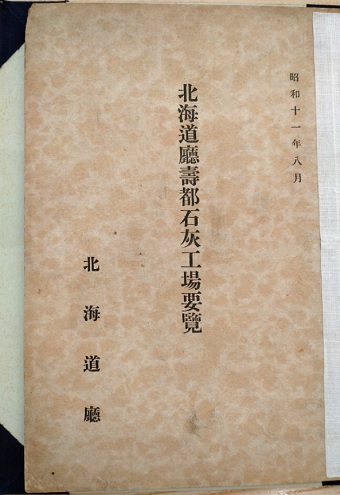 昭和十一年八月
北海道廳壽都石灰工場要覽
北海道廳